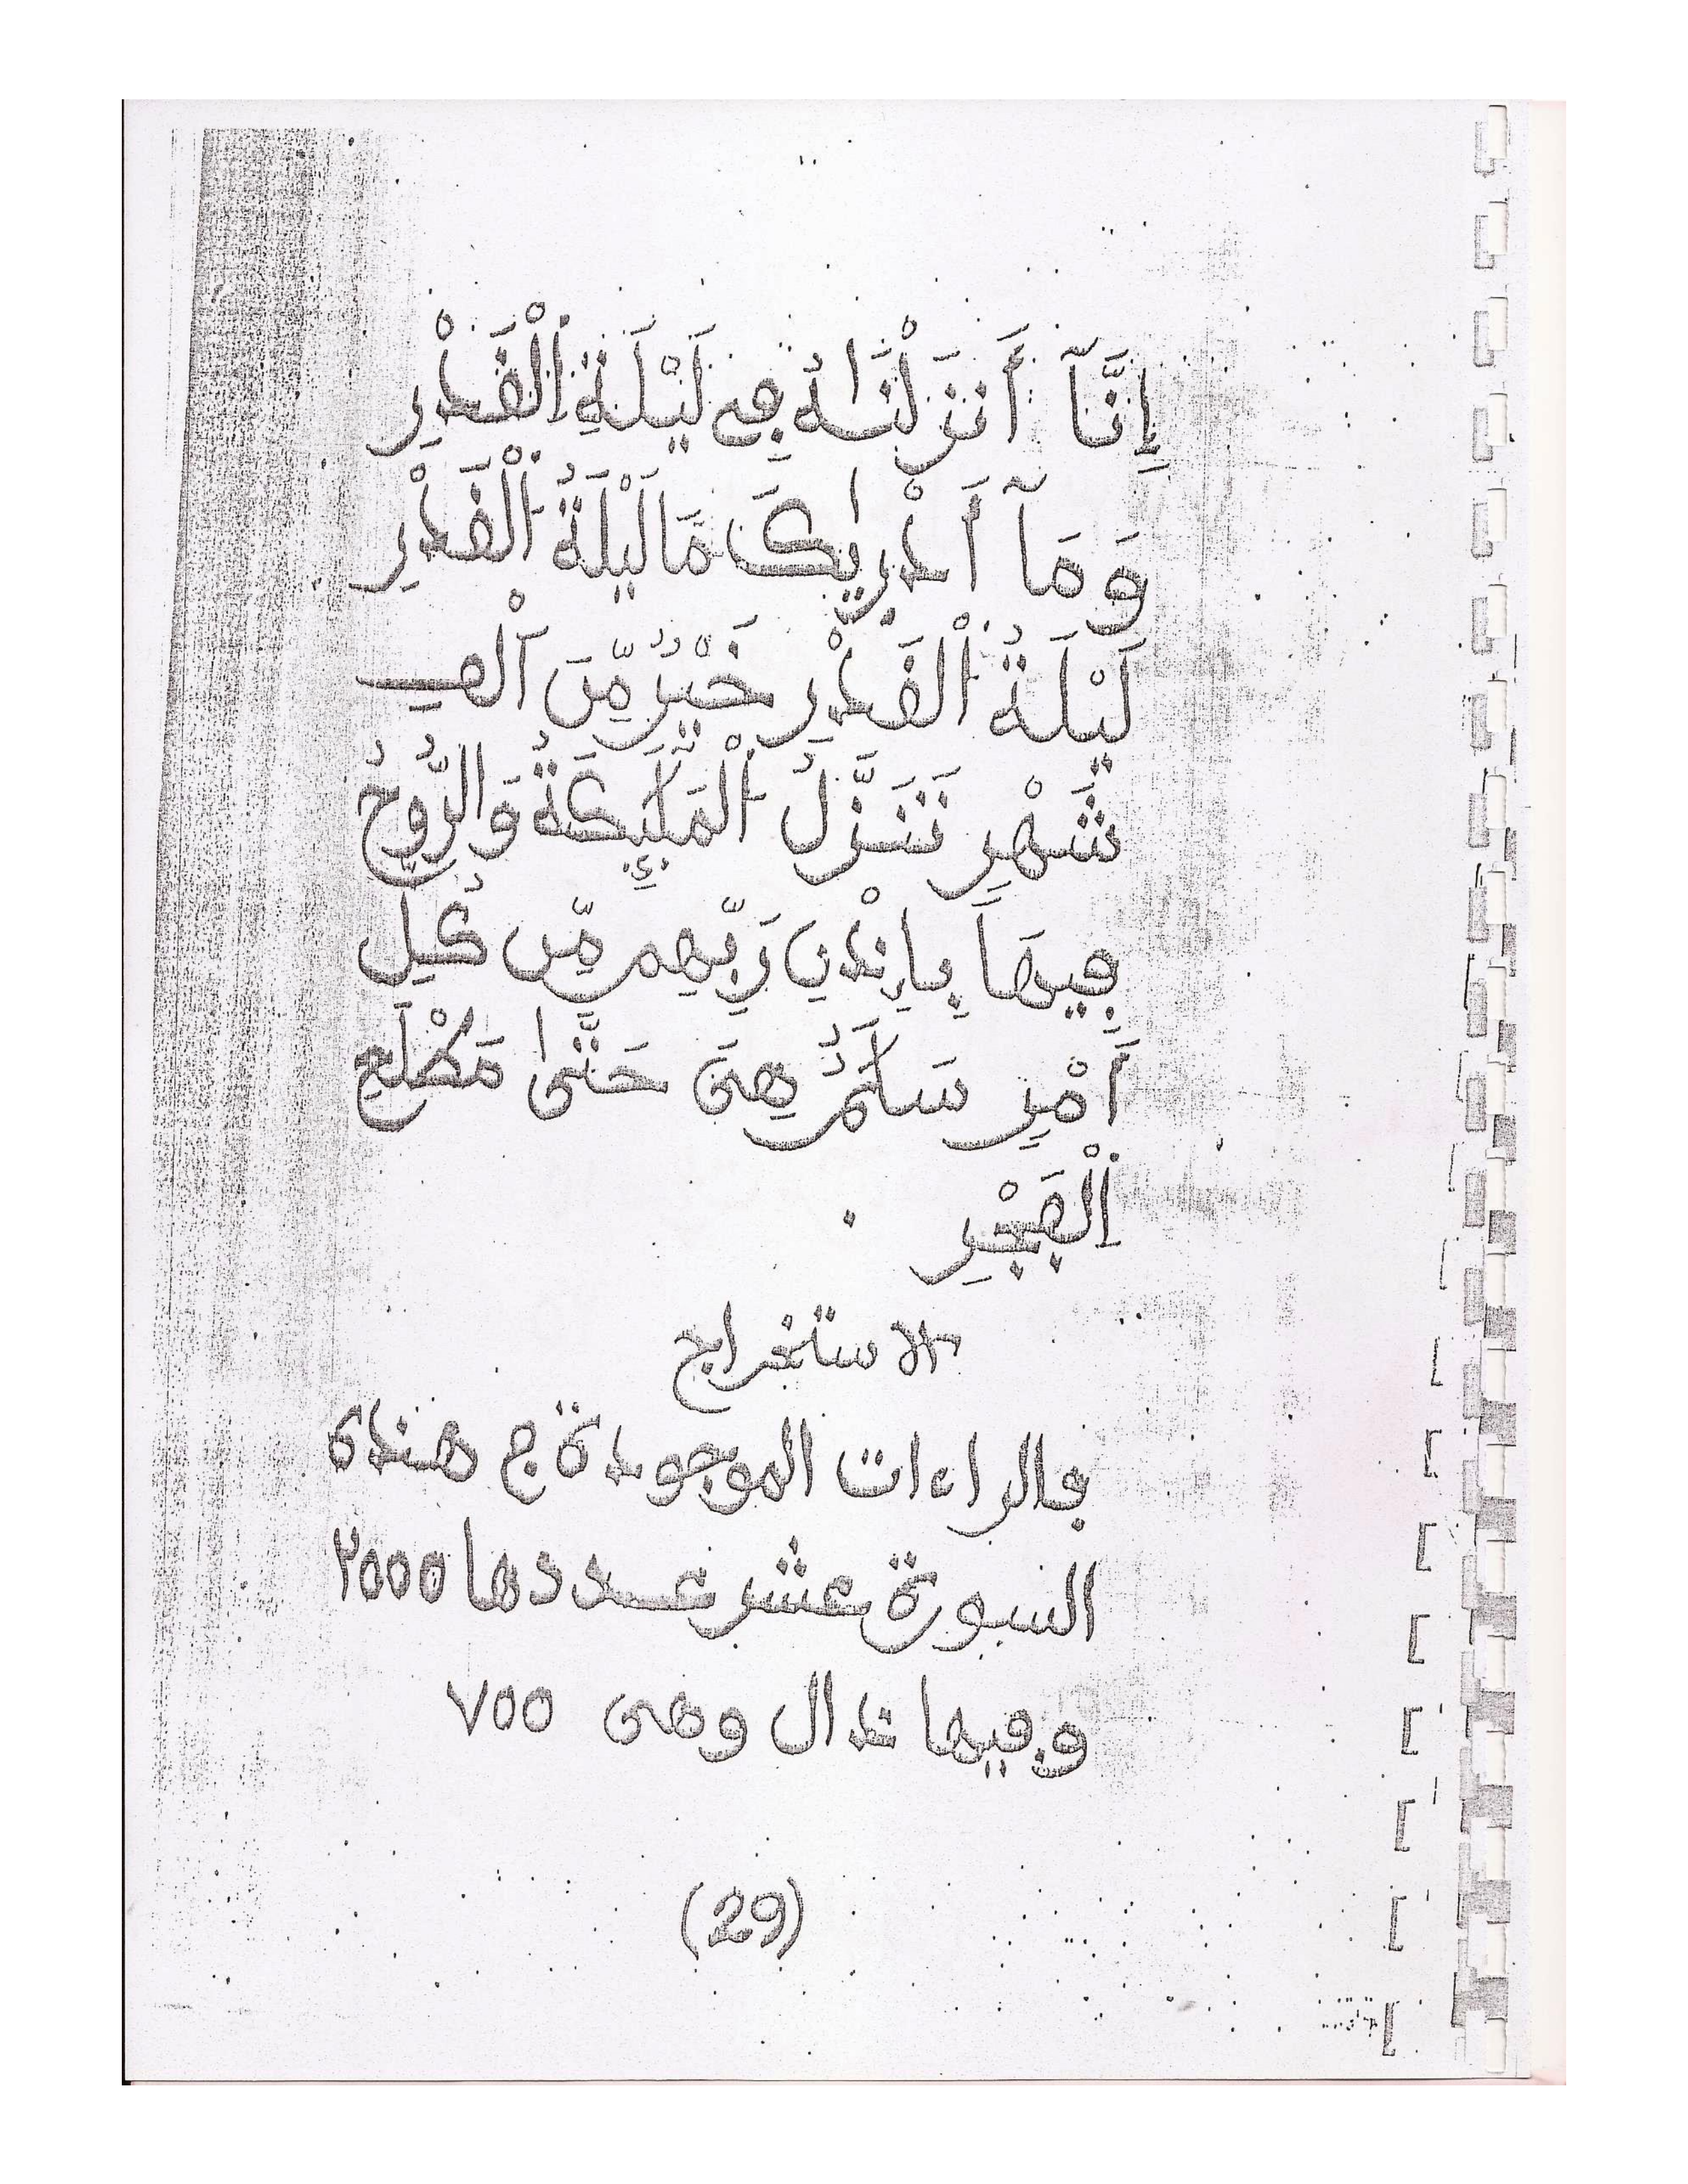 إِنَّآ أَنزَلْنَٰهُ فِے لَيْلَةِ اِ۬لْقَدْرِ
وَمَآ أَدْرٜيٰكَ مَا لَيْلَةُ اُ۬لْقَدْرِ
لَيْلَةُ اُ۬لْقَدْرِ خَيْرٌ مِّنَ اَلْفِ
شَهْرِ تَنَزَّلُ اُ۬لْمَلَٰٓئِكَةُ وَالرُّوحُ
فِيهَا بِإِذْنِ رَبِّهِم مِّن كُلِّ
أَمْرِ سَلَٰمٌ هِىَ حَتَّىٰ مَطْلَعِ
اِ۬لْفَجْرِ
الاستخراج
فالراءات الموجودة ج هذى
السورة عشر عددها ٢٥٥٥
وفيها ذال وهى ٧٥٥
(29)